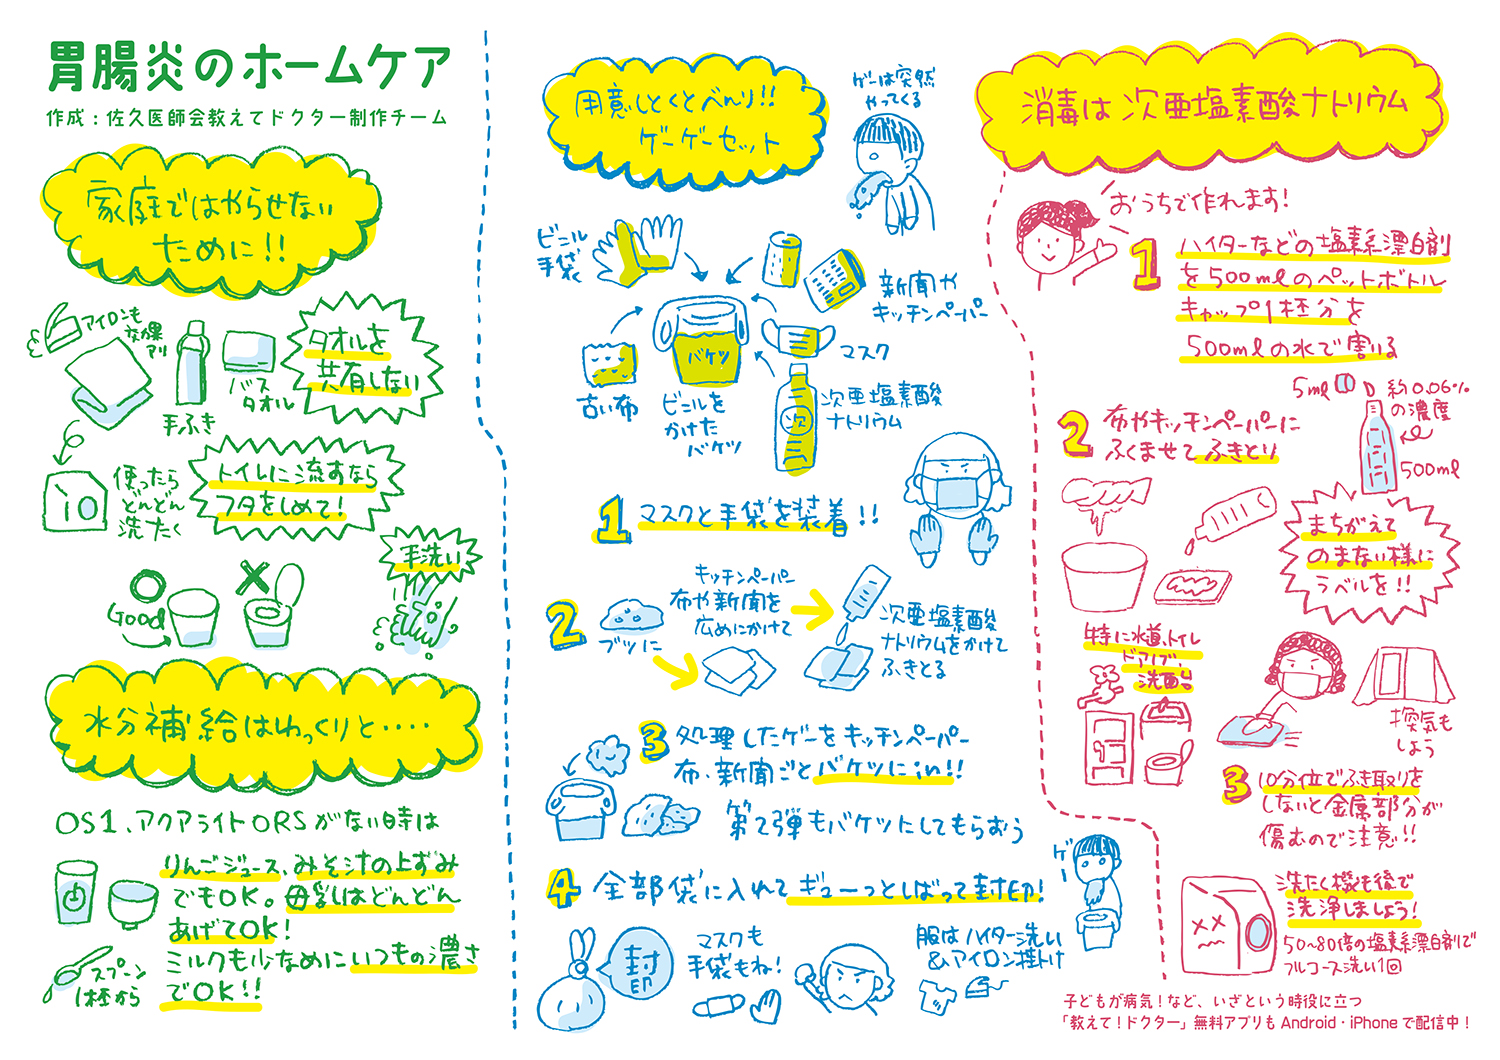 胃腸炎のホームケア
作成：佐久医師会教えてドクター制作チーム
家庭ではやらせない
ために!!
アイロンも
効果
アリ
手ふき
バス
タオル
タオルを
共有しない
使ったら
どんどん
洗たく
トイレに流すなら
フタをしめて!
手洗い
Good
水分補給はゆっくりと‥‥
OS1、アクアライトORSがない時は
りんごジュース、みそ汁の上ずみ
でもOK。母乳はどんどん
あげてOK!
ミルクも少なめにいつもの濃さ
でOK!!
スプーン
1杯から
用意しとくとべんり!!
ゲーゲーセット
ゲーは突然
やってくる
ビニル
手袋
新聞や
キッチンペーパー
バケツ
マスク
古い布
ビニルを
かけた
バケツ
次
次亜塩素酸
ナトリウム
1 マスクと手袋を装着!!
2
ブツに
キッチンペーパー
布や新聞を
広めにかけて
次亜塩素酸
ナトリウムをかけて
ふきとる
3 処理したゲーをキッチンペーパー
布、新聞ごとバケツにin!!
ゲ
第2弾もバケツにしてもらおう
4 全部袋に入れてギューっとしばって封印!
ゲ
封
印
マスクも
手袋もね!
服はハイター洗い
&アイロン掛け
消毒は次亜塩素酸ナトリウム
おうちで作れます!
1 ハイターなどの塩素系漂白剤
を500mlのペットボトル
キャップ1杯分を
500mlの水で割る
5ml
約0.06%
の濃度
500ml
2 布やキッチンペーパーに
ふくませてふきとり
まちがえて
のまない様に
ラベルを!!
特に水道、トイレ
ドアノブ、
洗面も
換気も
しよう
3 10分位でふき取りを
しないと金属部分が
傷むので注意!!
洗たく機も後で
洗浄しましょう!
50〜80倍の塩素系漂白剤で
フルコース洗い1回
子どもが病気！など、いざという時役に立つ
「教えて！ドクター」無料アプリもAndroid・iPhoneで配信中！